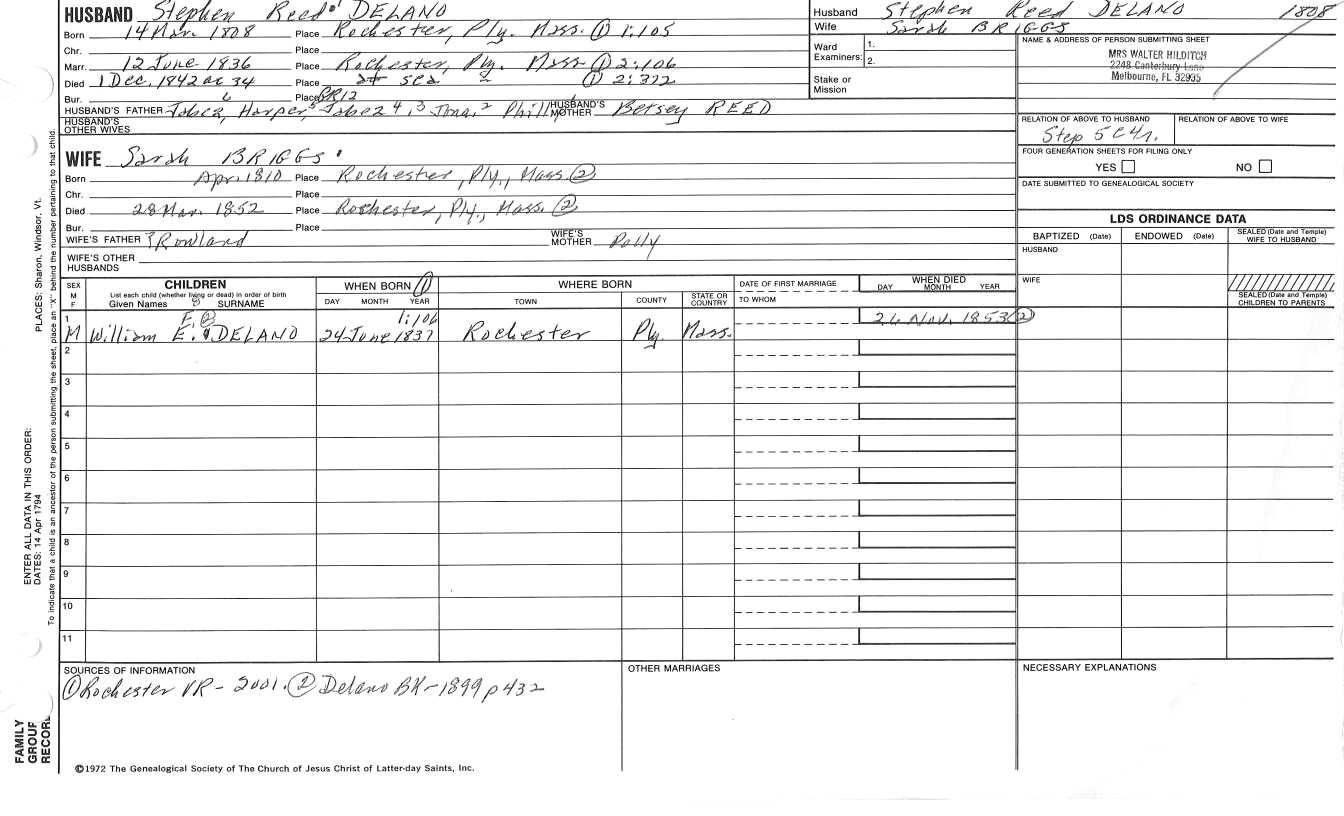 HUSBAND Stephen Reed DELANO
Born 14 Mar. 1808 Place Rochester, Ply. Mass. ① 1:105
Chr. Place
Marr. 12 June 1836 Place Rochester, Ply. Mass ① 2:106
Died 1 Dec. 1842 ae 34 Place at sea ① 2:372
Bur. Place
HUSBAND'S FATHER Jabez, Harper, Jabez 4, 3 Jona, 2 Phillip HUSBAND'S MOTHER Betsey REED
HUSBAND'S OTHER WIVES
WIFE Sarah BRIGGS
Born Apr. 1810 Place Rochester, Ply., Mass. ②
Chr. Place
Died 28 Mar. 1852 Place Rochester, Ply., Mass. ②
Bur. Place
WIFE'S FATHER Rowland WIFE'S MOTHER Polly
WIFE'S OTHER HUSBANDS
Husband Stephen Reed DELANO 1808
Wife Sarah BRIGGS
Ward Examiners: 1.
2.
Stake or Mission
NAME & ADDRESS OF PERSON SUBMITTING SHEET
MRS WALTER HILDITCH
2248 Canterbury Lane
Melbourne, FL 32935
RELATION OF ABOVE TO HUSBAND RELATION OF ABOVE TO WIFE
Step 5C4r.
FOUR GENERATION SHEETS FOR FILING ONLY
YES NO
DATE SUBMITTED TO GENEALOGICAL SOCIETY
LDS ORDINANCE DATA
BAPTIZED (Date) ENDOWED (Date) SEALED (Date and Temple) WIFE TO HUSBAND
HUSBAND
WIFE
SEALED (Date and Temple) CHILDREN TO PARENTS
SEX M F
CHILDREN
List each child (whether living or dead) in order of birth
Given Names SURNAME
WHEN BORN ①
DAY MONTH YEAR
WHERE BORN
TOWN COUNTY STATE OR COUNTRY
DATE OF FIRST MARRIAGE
TO WHOM
WHEN DIED
DAY MONTH YEAR
1 E. ② 1:106 26 Nov. 1853 ②
M William E. DELANO 24 June 1837 Rochester Ply. Mass.
2
3
4
5
6
7
8
9
10
11
SOURCES OF INFORMATION
① Rochester VR - 2001. ② Delano BK - 1899 p 432
OTHER MARRIAGES
NECESSARY EXPLANATIONS
©1972 The Genealogical Society of The Church of Jesus Christ of Latter-day Saints, Inc.
ENTER ALL DATA IN THIS ORDER:
DATES: 14 Apr 1794
PLACES: Sharon, Windsor, Vt.
To indicate that a child is an ancestor of the person submitting the sheet, place an "X" behind the number pertaining to that child.
FAMILY
GROUP
RECORD